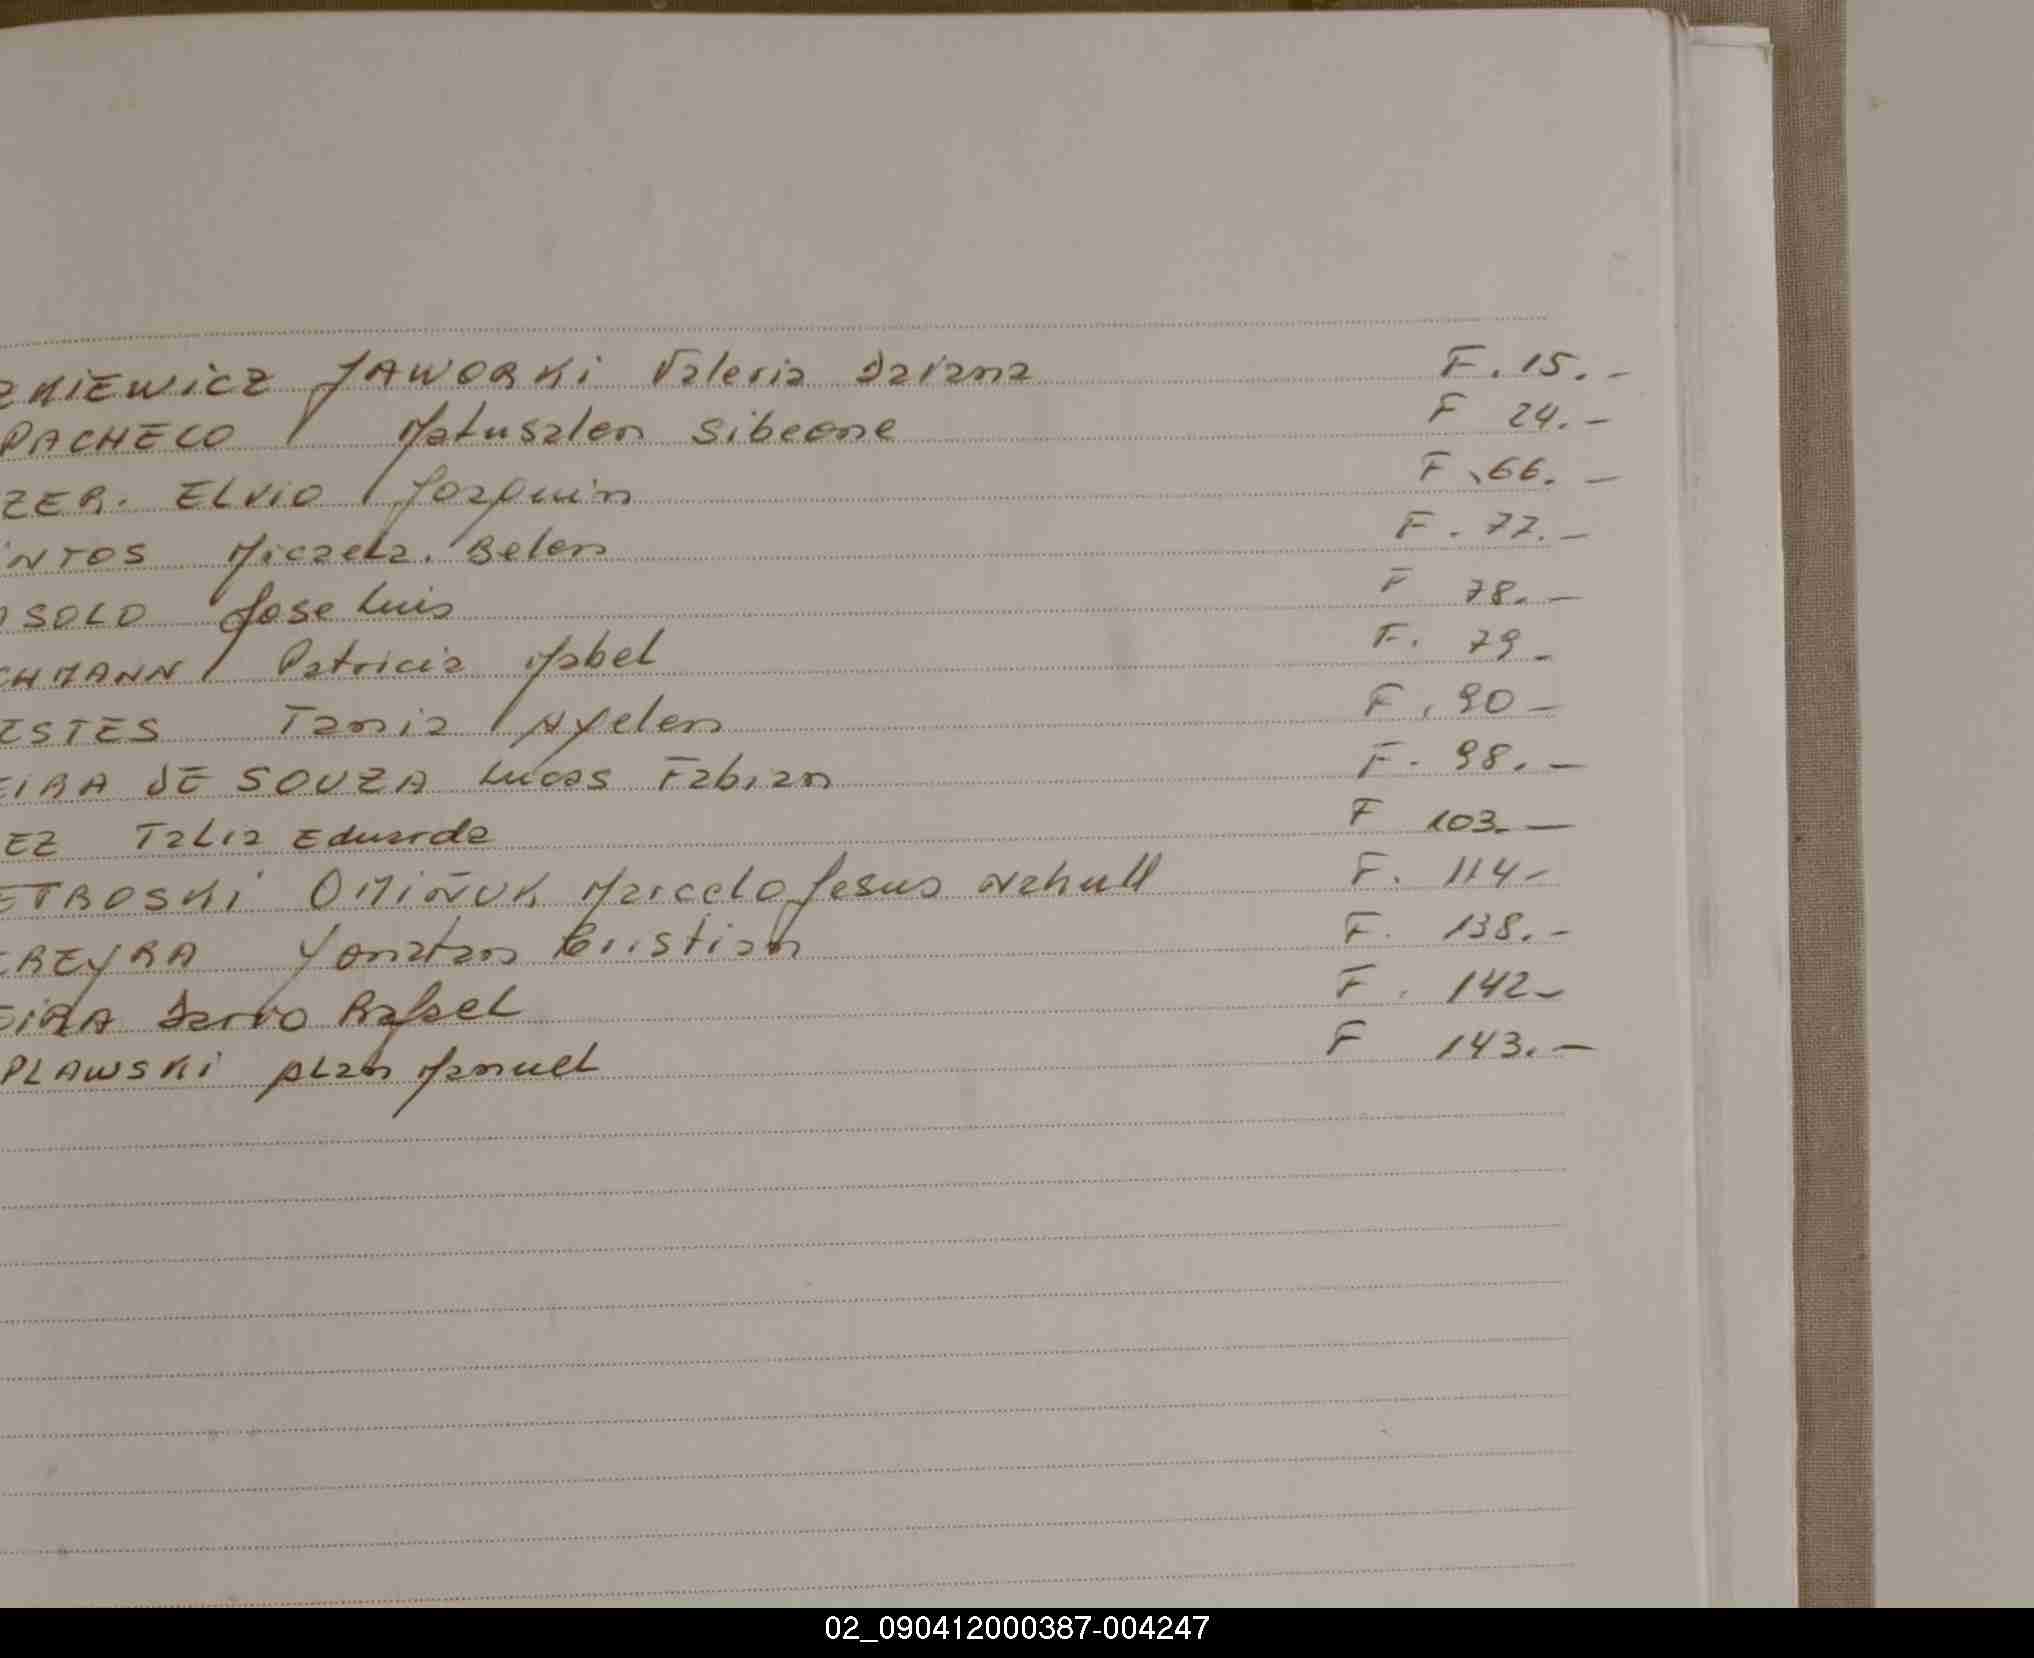 ZKIEWICZ JAWORKI Valeria Daiana F. 15.-
PACHECO Matusalen Sibeone F 24.-
ZER. ELVIO Joaquin F. 66.-
NTOS Micaela. Belen F. 77.-
SOLO Jose Luis F 78.-
CHMANN Patricia Mabel F. 79-
ESTES Tania Ayelen F. 90-
EIRA DE SOUZA Lucas Fabian F. 98.-
EZ Talia Eduarda F 103.-
ETROSKI OMIÑUK Marcelo Jesus Nahull F. 114-
EREYRA Yonatan Cristian F. 138.-
EIRA Dario Rafael F. 142-
PLAWSKI Alan Manuel F 143.-
02_090412000387-004247